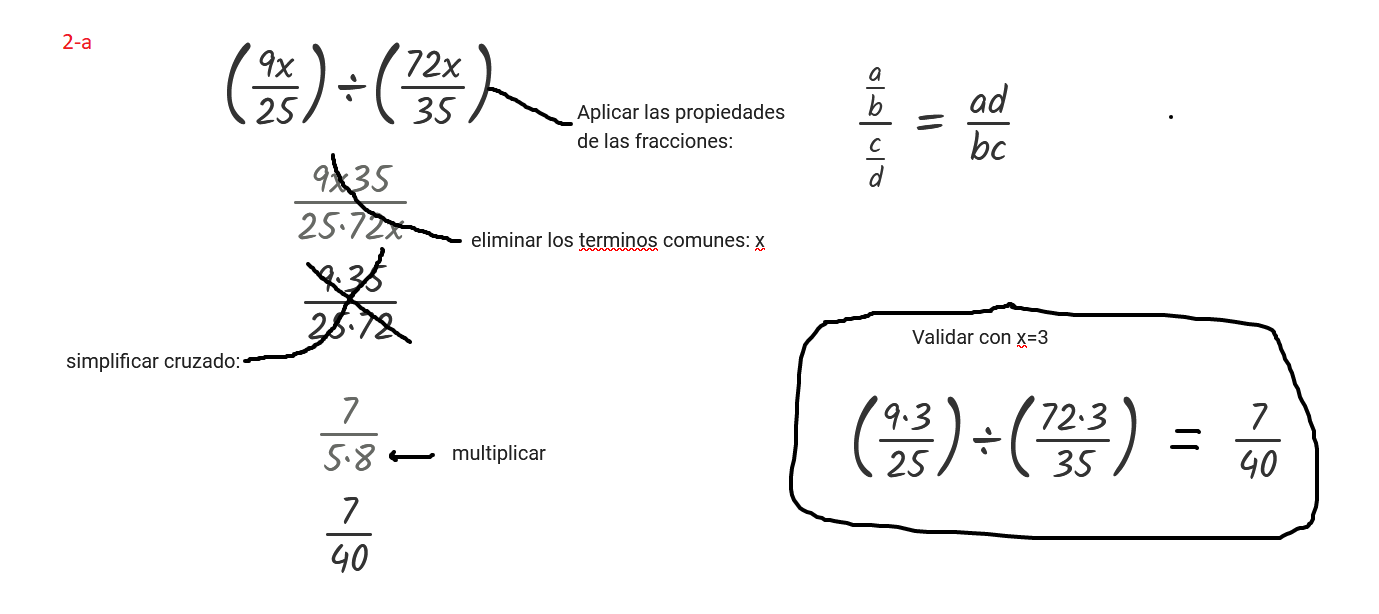 2-a
(9x/25) ÷ (72x/35)
Aplicar las propiedades
de las fracciones:
a/b / c/d = ad/bc
9x35/25·72x
eliminar los terminos comunes: x
9·35/25·72
simplificar cruzado:
7/5·8
multiplicar
7/40
Validar con x=3
(9·3/25) ÷ (72·3/35) = 7/40